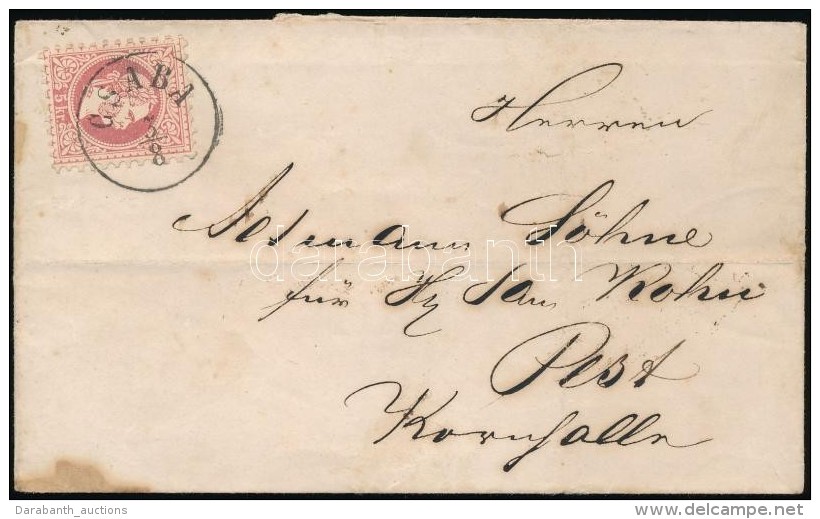 5 kr
CSABA
5/8
Herren
Altmann Söhne
für H. Sam Kohn
Pest
Kornhalle
darabanth
Darabanth_auctions
www.delcampe.net